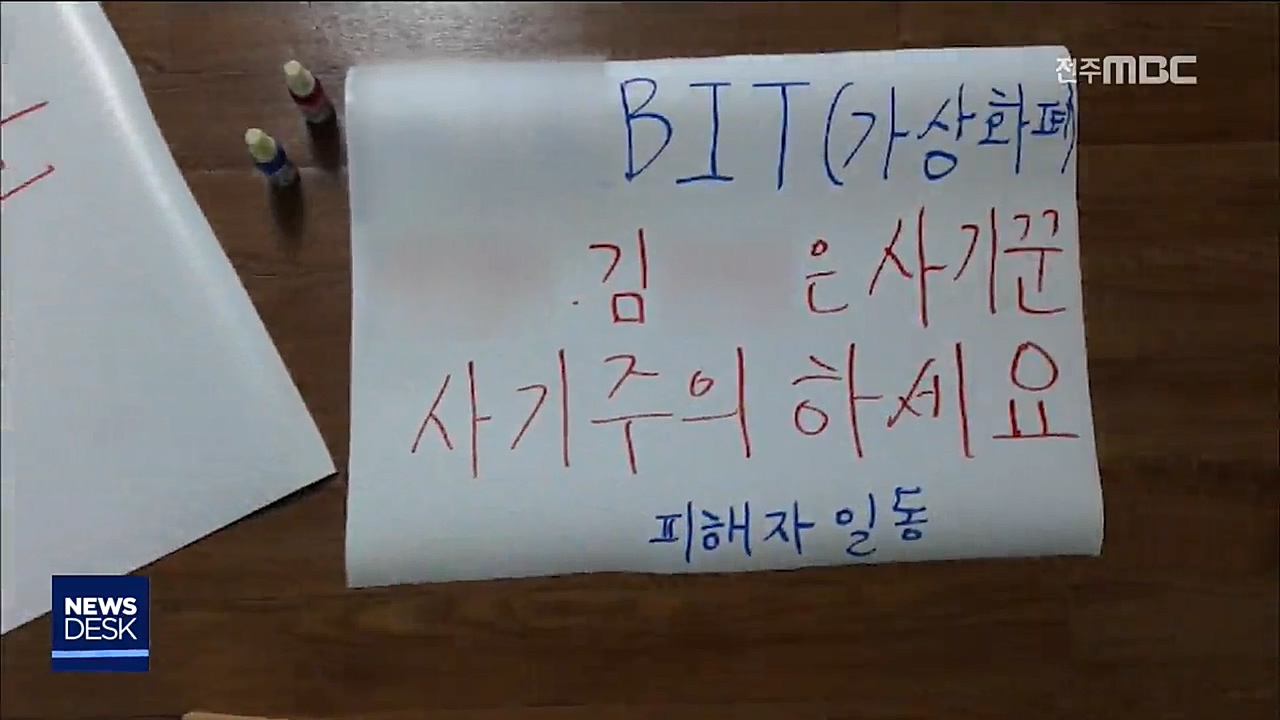 전주MBC
BIT(가상화폐)
김 은 사기꾼
사기주의 하세요
피해자 일동
NEWS
DESK